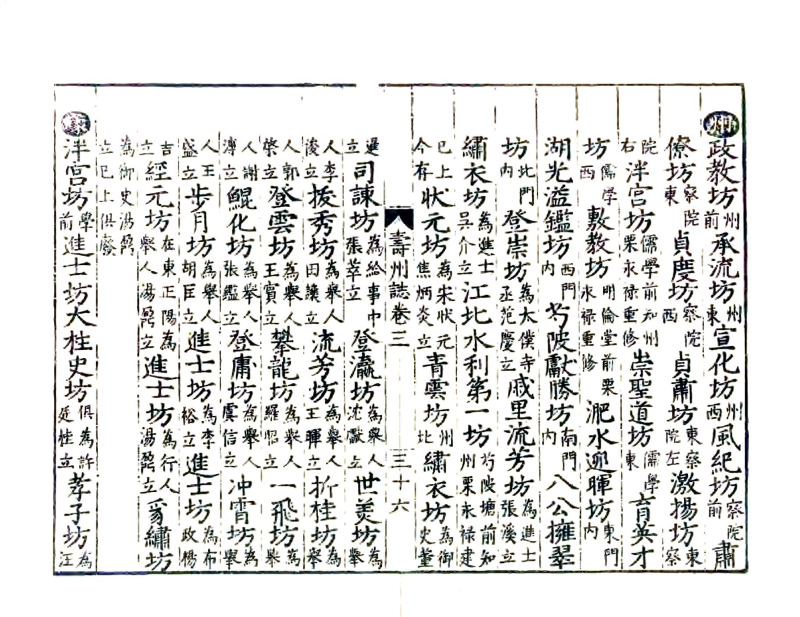 州政教坊州前承流坊州東宣化坊州西風紀坊察院前肅
僚坊察院東貞度坊察院西貞肅坊東察院左激揚坊東察
院右泮宮坊儒學前知州栗永祿重修崇聖道坊儒學東育英才
坊儒學西敷教坊明倫堂前栗永祿重修淝水迎暉坊東門內
湖光溢鑑坊西門內芍陂獻勝坊南門內八公擁翠
坊北門內登崇坊為太僕寺丞范慶立戚里流芳坊為進士張溪立
繡衣坊為進士吳介立江北水利第一坊芍陂塘前知州栗永祿建
已上今存狀元坊為宋狀元焦炳炎立青雲坊州北繡衣坊為御史董
壽州誌卷三
三十六
暹立司諫坊為給事中張萃立登瀛坊為舉人沈獻立世美坊為舉
人李浚立拔秀坊為舉人田讓立流芳坊為舉人王暉立折桂坊為舉
人郭榮立登雲坊為舉人王賓立攀龍坊為舉人羅恕立一飛坊為舉
人謝溥立鯤化坊為舉人張鑑立登庸坊為舉人虞信立冲霄坊為舉
人王盛立步月坊為舉人胡臣立進士坊為李裕立進士坊為布政楊
吉立經元坊在東正陽為舉人湯鼐立進士坊為行人湯鼐立豸繡坊
為御史湯鼐立已上俱廢
泮宮坊學前進士坊大柱史坊俱為許廷桂立孝子坊為汪